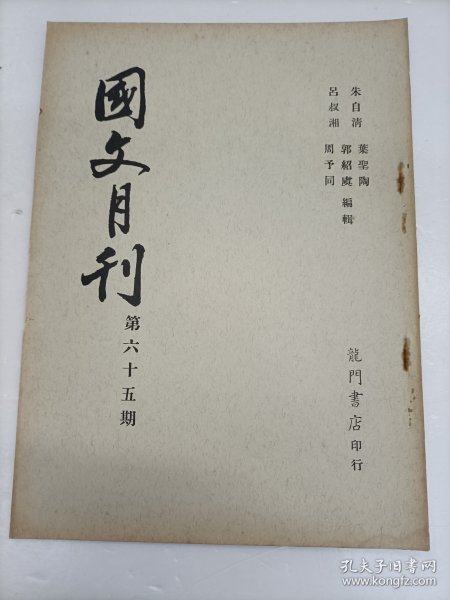 朱自清 葉聖陶
郭紹虞 編輯
呂叔湘 周予同
龍門書店印行
國文月刊
第六十五期
孔夫子旧书网
www.kongfz.com